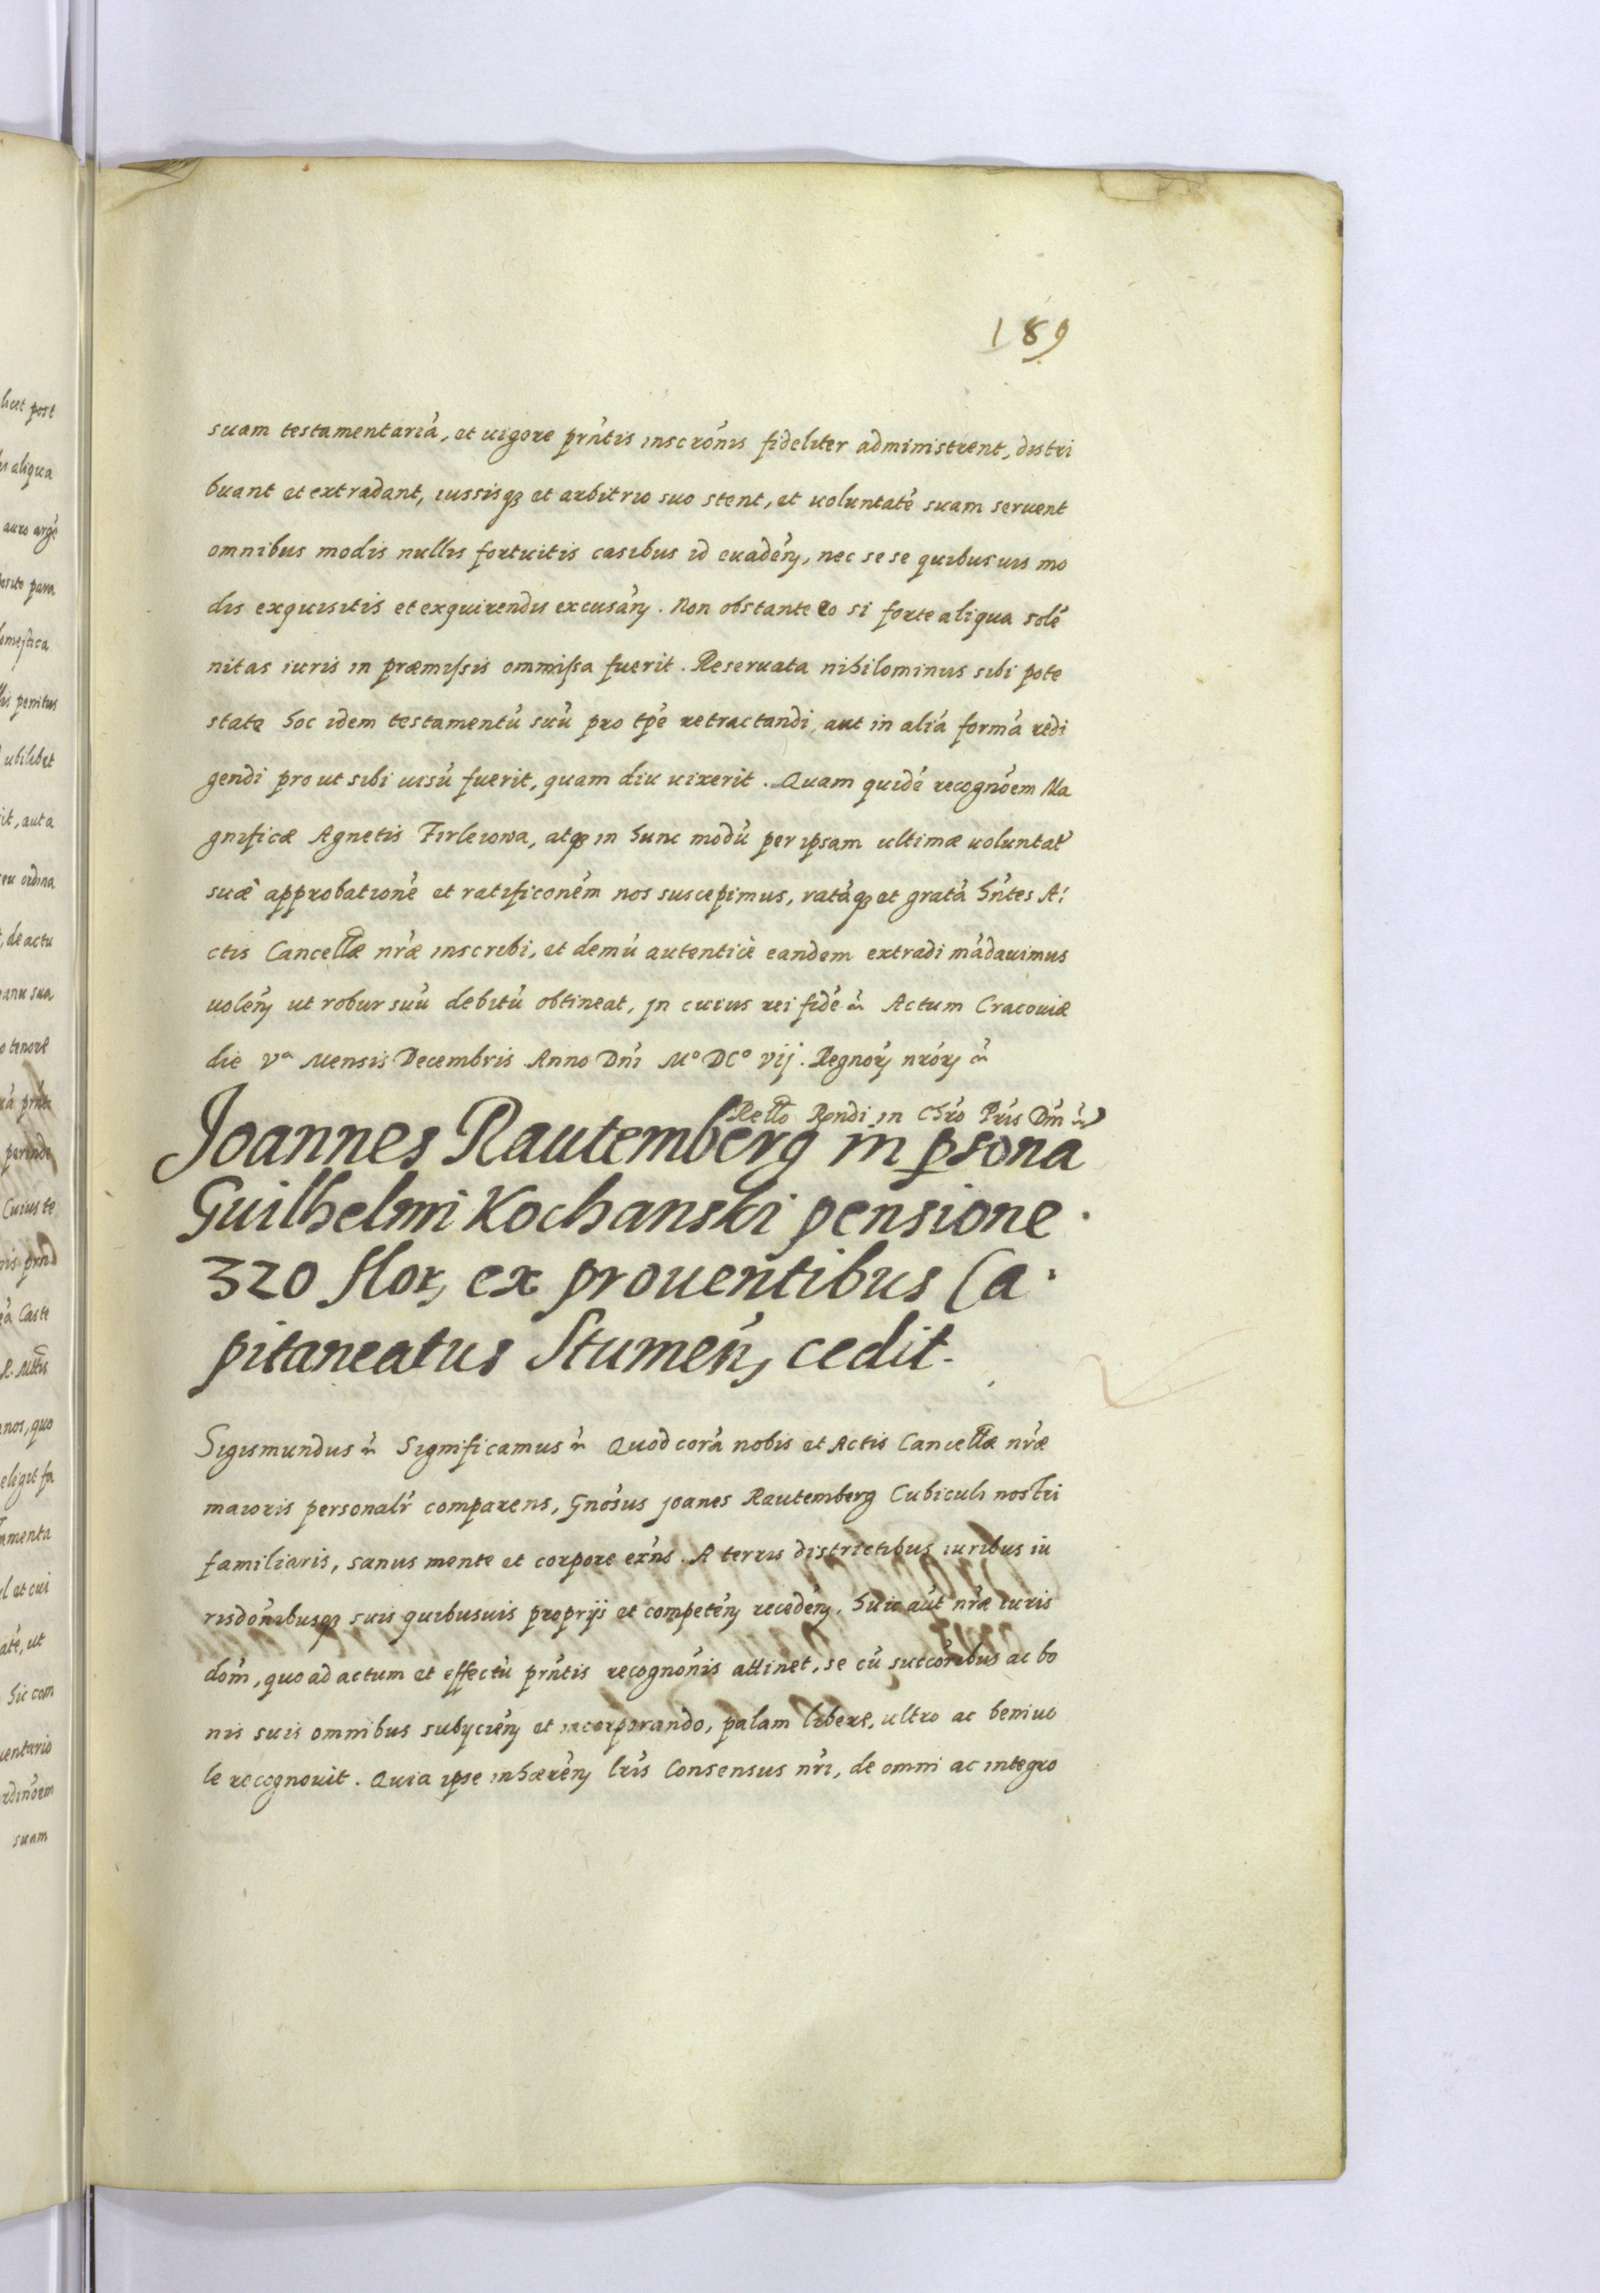 189
suam testamentariá, et uigore prńtis inscrónis fideliter administrent, distri
buant et extradant, iussisq3 et arbitrio suo stent, et uoluntaté suam seruent
omnibus modis nullis fortuitis casibus id euadéń, nec se se quibusuis mo
dis exquisitis et exquirendis excusáń. Non obstante eo si forte aliqua solé
nitas iuris in præmissis ommissa fuerit. Reseruata nihilominus sibi pote
state hoc idem testamentú suú pro tpé retractandi, aut in aliá formá redi
gendi prout sibi uisú fuerit, quam diu uixerit. Quam quidé recognóem Ma
gnificæ Agnetis Firleiowa, atq3 in hunc modú per ipsam ultimæ uoluntat
suæ approbationé et ratificoném nos suscepimus, ratáq3 et gratá hńtes A:
ctis Cancellæ nŕæ inscribi, et demú autenticè eandem extradi mádauimus
uoleń ut robur suú debitú obtineat, in cuius rei fidé Actum Cracouiæ
die Va Mensis Decembris Anno Dńi Mo DCo vij. Regnorȝ nrórȝ
Rello Rendi in Chŕo Pŕis Dńi
Joannes Rautemberg in psona
Guilhelmi Kochanski pensione
320 flor, ex prouentibus Ca:
pitaneatus Stumeń, cedit.
Sigismundus Significamus Quod corá nobis et Actis Cancellæ nŕæ
maioris personalŕ comparens, Gnósus joanes Rautemberg Cubiculi nostri
familiaris, sanus mente et corpore exńs. A terris districtibus iuribus iu
risdońibusq3 suis quibusuis proprijs et competéń recedéń, huic aút nŕæ iuris
dońi, quo ad actum et effectú prńtis recognónis attinet, se cú succóribus ac bo
nis suis omnibus subijcień et incorporando, palam libere, ultro ac beniuo
le recognouit. Quia ipse inhæréń lŕis Consensus nŕi, de omni ac integro